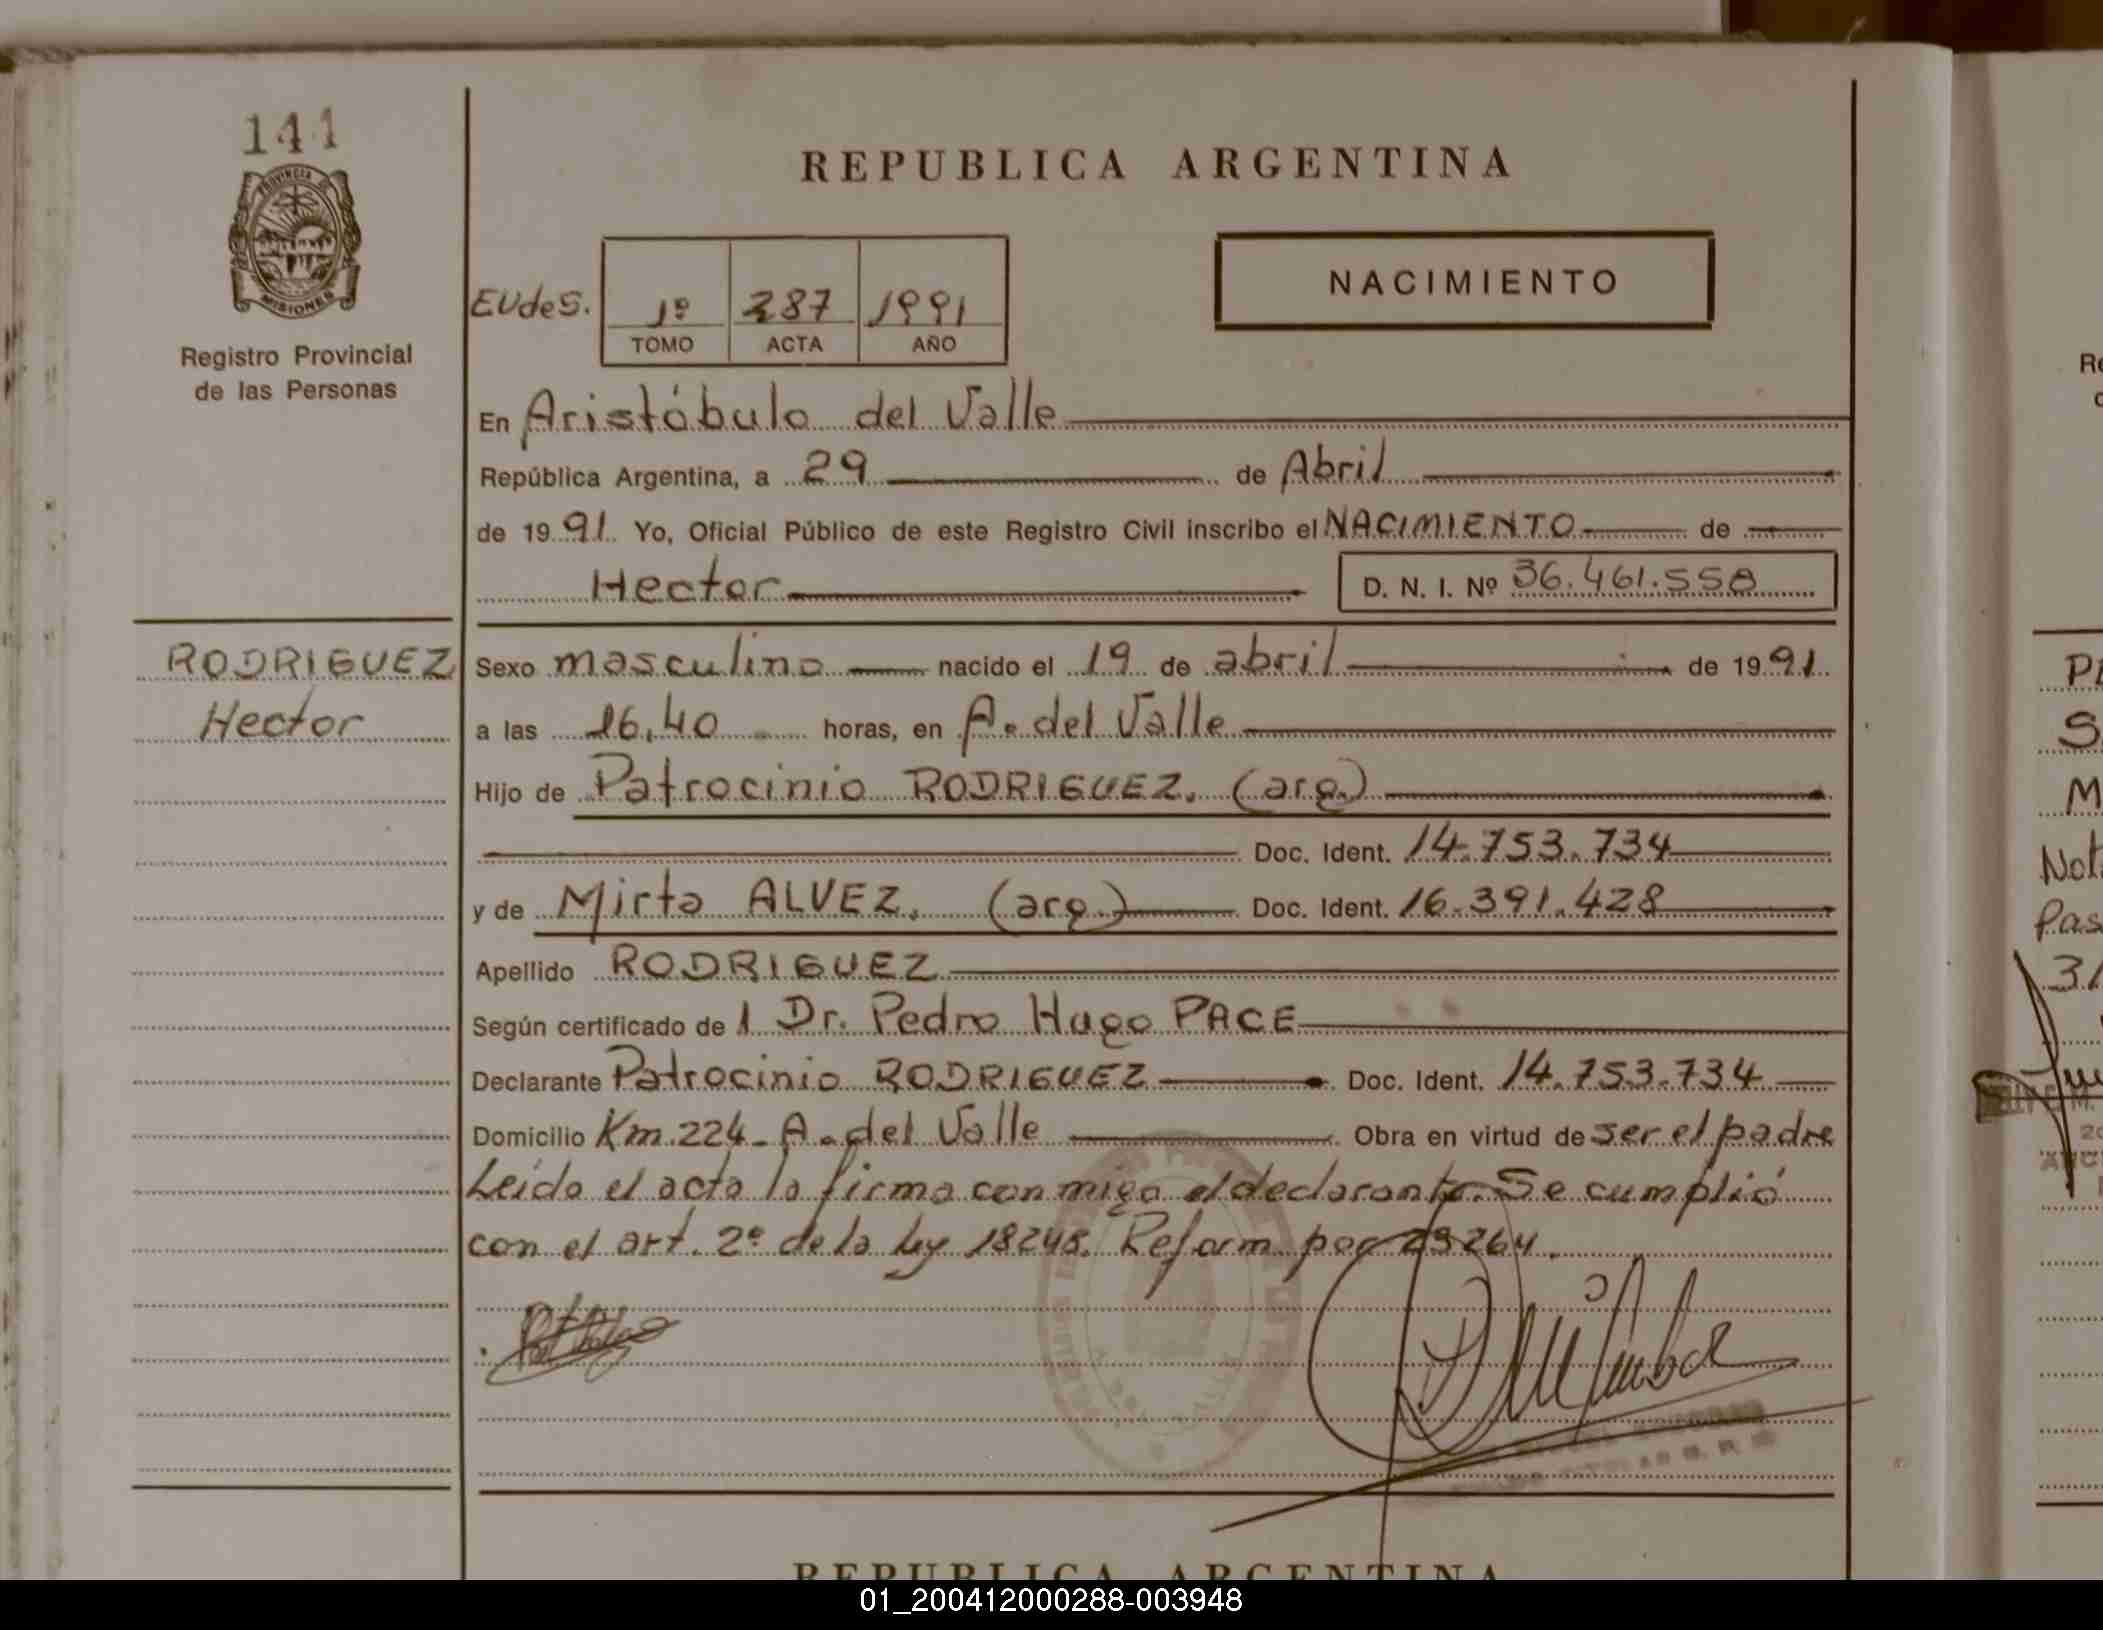 141
PROVINCIA DE
MISIONES
Registro Provincial
de las Personas
RODRIGUEZ
Hector
REPUBLICA ARGENTINA
NACIMIENTO
EUdeS. 1º 287 1991
TOMO ACTA AÑO
En Aristóbulo del Valle
República Argentina, a 29 de Abril
de 1991. Yo, Oficial Público de este Registro Civil inscribo el NACIMIENTO de
Hector D. N. I. Nº 36.461.558
Sexo masculino nacido el 19 de abril de 1991
a las 16,40 horas, en A. del Valle
Hijo de Patrocinio RODRIGUEZ. (arg.)
Doc. Ident. 14.753.734
y de Mirta ALVEZ. (arg.) Doc. Ident. 16.391.428
Apellido RODRIGUEZ
Según certificado de l Dr. Pedro Hugo PACE
Declarante Patrocinio RODRIGUEZ Doc. Ident. 14.753.734
Domicilio Km.224_ A. del Valle Obra en virtud de ser el padre
Leida el acta la firma conmigo el declarante. Se cumplió
con el art. 2º de la ley 18248. Reform. por 23264.
REPUBLICA ARGENTINA
01_200412000288-003948